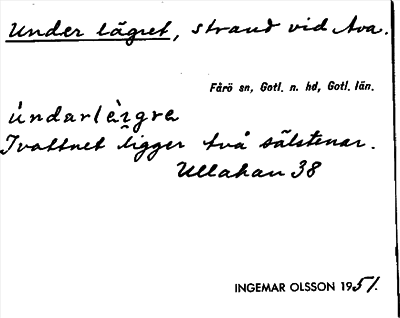 Under lägret, strand vid Ava.
Fårö sn, Gotl. n. hd, Gotl. län.
ùndarlèigra
I vattnet ligger två sälstenar.
Ullahau 38
INGEMAR OLSSON 1951.